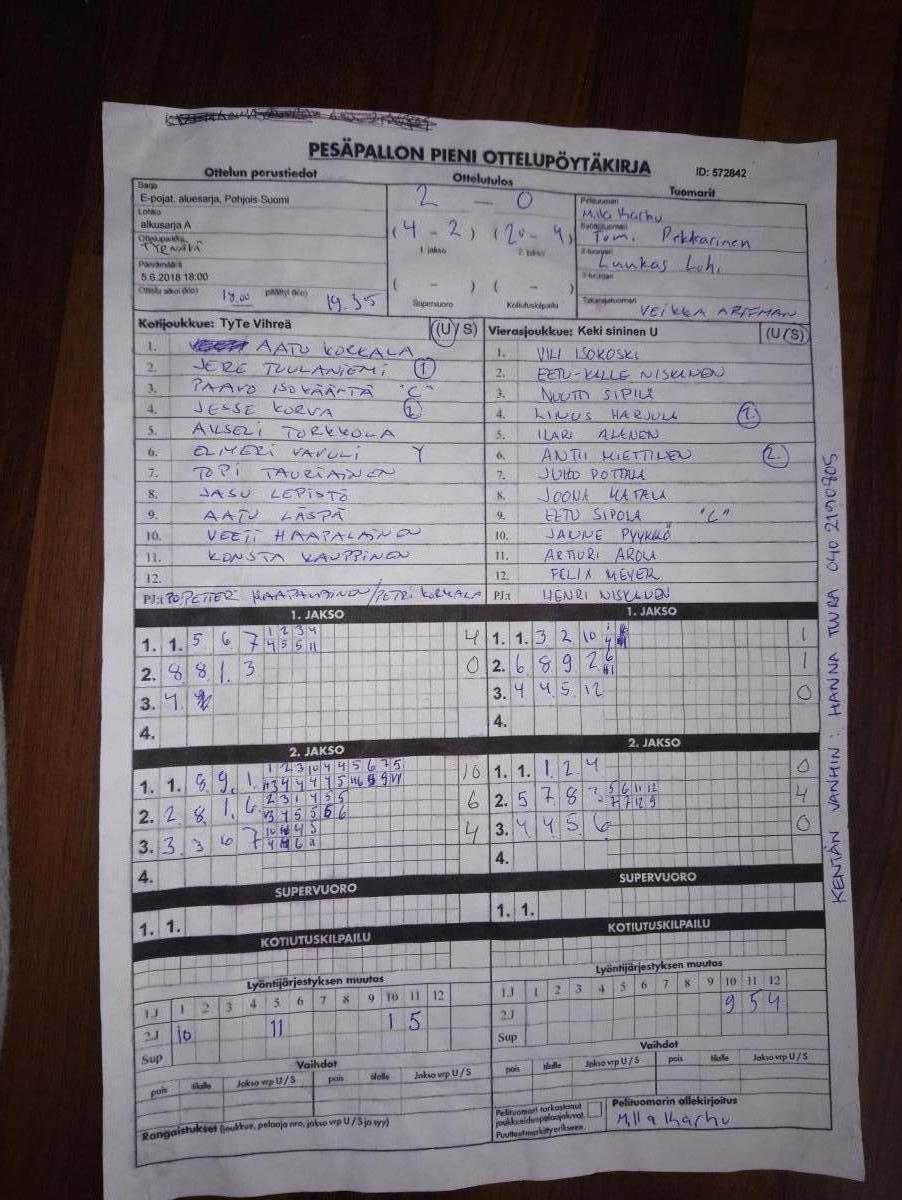 PESÄPALLON PIENI OTTELUPÖYTÄKIRJA
ID: 572842
Ottelun perustiedot
Ottelutulos
Tuomarit
Sarja
E-pojat, aluesarja, Pohjois-Suomi
Lohko
alkusarja A
Ottelupaikka
TYRNÄVÄ
Päivämäärä
5.6.2018 18:00
Ottelu alkoi (klo) 18.00 päättyi (klo) 19.35
2 - 0
(4 - 2) (20 - 4)
1. jakso 2. jakso
( - ) ( - )
Supervuoro Kotiutuskilpailu
Pelituomari
Milla Karhu
Syöttötuomari
Tomi Pekkarinen
2-tuomari
Luukas Loh.
3-tuomari
Takarajatuomari
VEIKKA ARFFMAN
Kotijoukkue: TyTe Vihreä (U/S)
1. AATU KORKALA
2. JERE TUULANIEMI 1
3. PAAVO ISOKÄÄNTÄ "C"
4. JESSE KORVA 2
5. AKSELI TORKKOLA
6. ELMERI VAVULI Y
7. TOPI TAURIAINEN
8. JASU LEPISTÖ
9. AATU LÄSPÄ
10. VEETI HAAPALAINEN
11. KONSTA KAUPPINEN
12.
PJ:t PETTER HAAPALAINEN/PETRI KORKALA
Vierasjoukkue: Keki sininen U (U/S)
1. VILI ISOKOSKI
2. EETU-KALLE NISKANEN
3. NUUTTI SIPILÄ
4. LINUS HARJULA 1.
5. ILARI ALANEN
6. ANTTI MIETTINEN 2.
7. JUHO POTTALA
8. JOONA MATALA
9. EETU SIPOLA "C"
10. JANNE PYYKKÖ
11. ARTTURI AROLA
12. FELIX MEYER
PJ:t HENRI NISKANEN
KENTÄN VANHIN: HANNA TUIRA 040 2190805
1. JAKSO
1. 1. 5 6 7 1 2 3 4 4
4 5 5 11
2. 8 8 1. 3 0
3. 4
4.
1. JAKSO
1. 1. 3 2 10 1
2. 6 8 9 2 1
3. 4 4 5 12 0
4.
2. JAKSO
1. 1. 8 9 1. 1 2 3 10 4 4 5 6 7 5 10
2. 2 8 1. 6 2 3 1 4 5 5 6
3 4 5 5 6 6
3. 3 3 6 7 4
4.
2. JAKSO
1. 1. 1 2 4 0
2. 5 7 8 5 6 11 12 4
7 7 12 9
3. 4 4 5 6 0
4.
SUPERVUORO
1. 1.
SUPERVUORO
1. 1.
KOTIUTUSKILPAILU
KOTIUTUSKILPAILU
Lyöntijärjestyksen muutos
1.J 1 2 3 4 5 6 7 8 9 10 11 12
2.J 10 11 1 5
Sup
Lyöntijärjestyksen muutos
1.J 1 2 3 4 5 6 7 8 9 10 11 12
2.J 9 5 4
Sup
Vaihdot
pois tilalle Jakso vrp U / S pois tilalle Jakso vrp U / S
Vaihdot
pois tilalle Jakso vrp U / S pois tilalle Jakso vrp U / S
Rangaistukset (joukkue, pelaaja nro, jakso vrp U / S ja syy)
Pelituomari tarkastanut
joukkueiden pelaajaluvat.
Puutteet merkitty erikseen.
Pelituomarin allekirjoitus
Milla Karhu